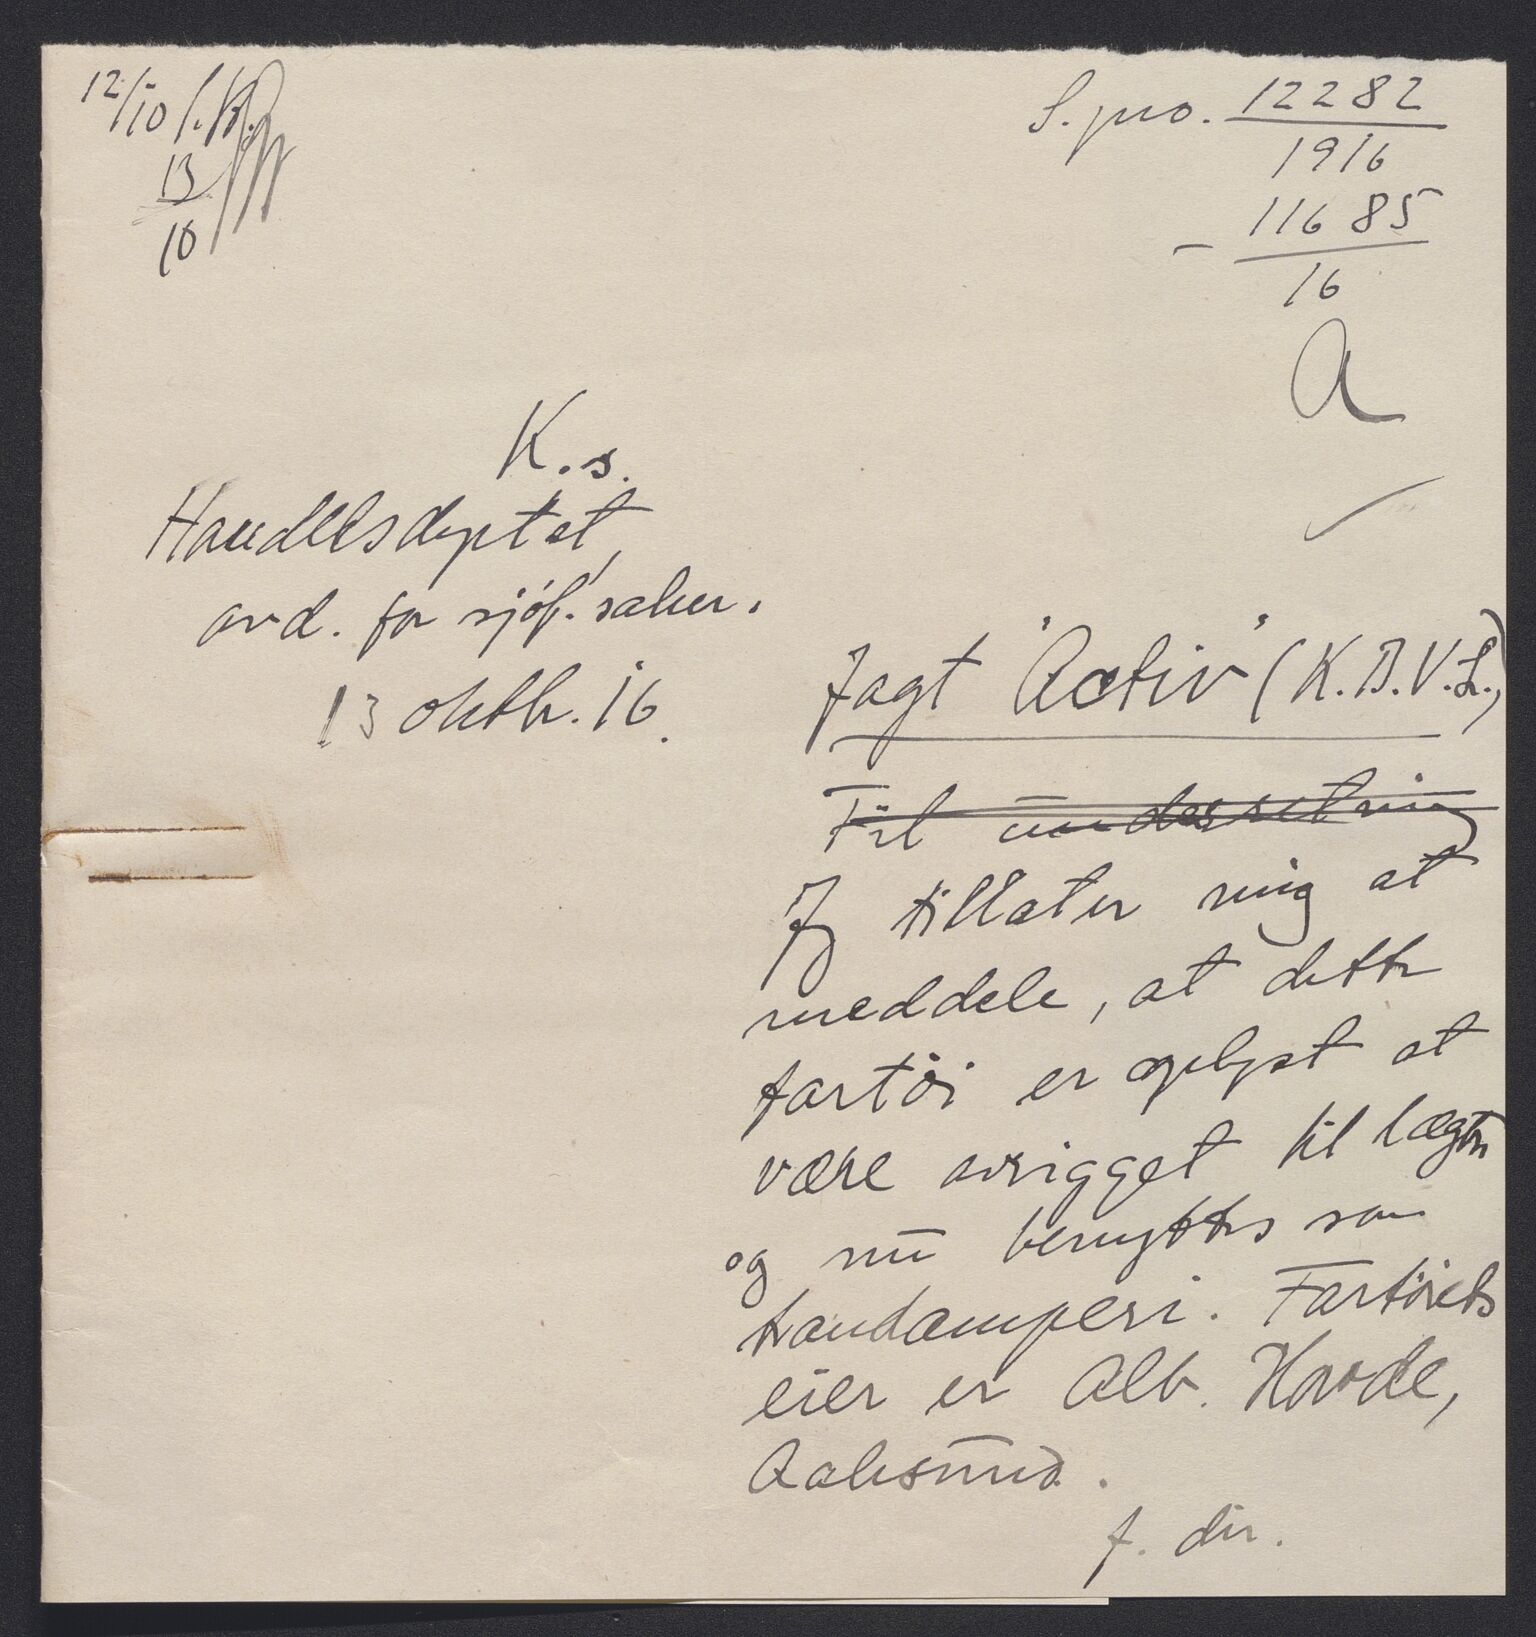 12/10
13
10
S. pro. 12282
1916
- 11685
16
A
K. s.
Handelsdeptet,
avd. for sjöf. saker.
13 oktbr. 16.
Jagt "Activ" (K.B.V.L.)
Til underretning
Jeg tillater mig at
meddele, at dette
fartöi er oplyst at
være avrigget til lægter
og nu benyttes som
trandamperi. Fartöiets
eier er Alb. Hovde,
Aalesund.
f. dir.